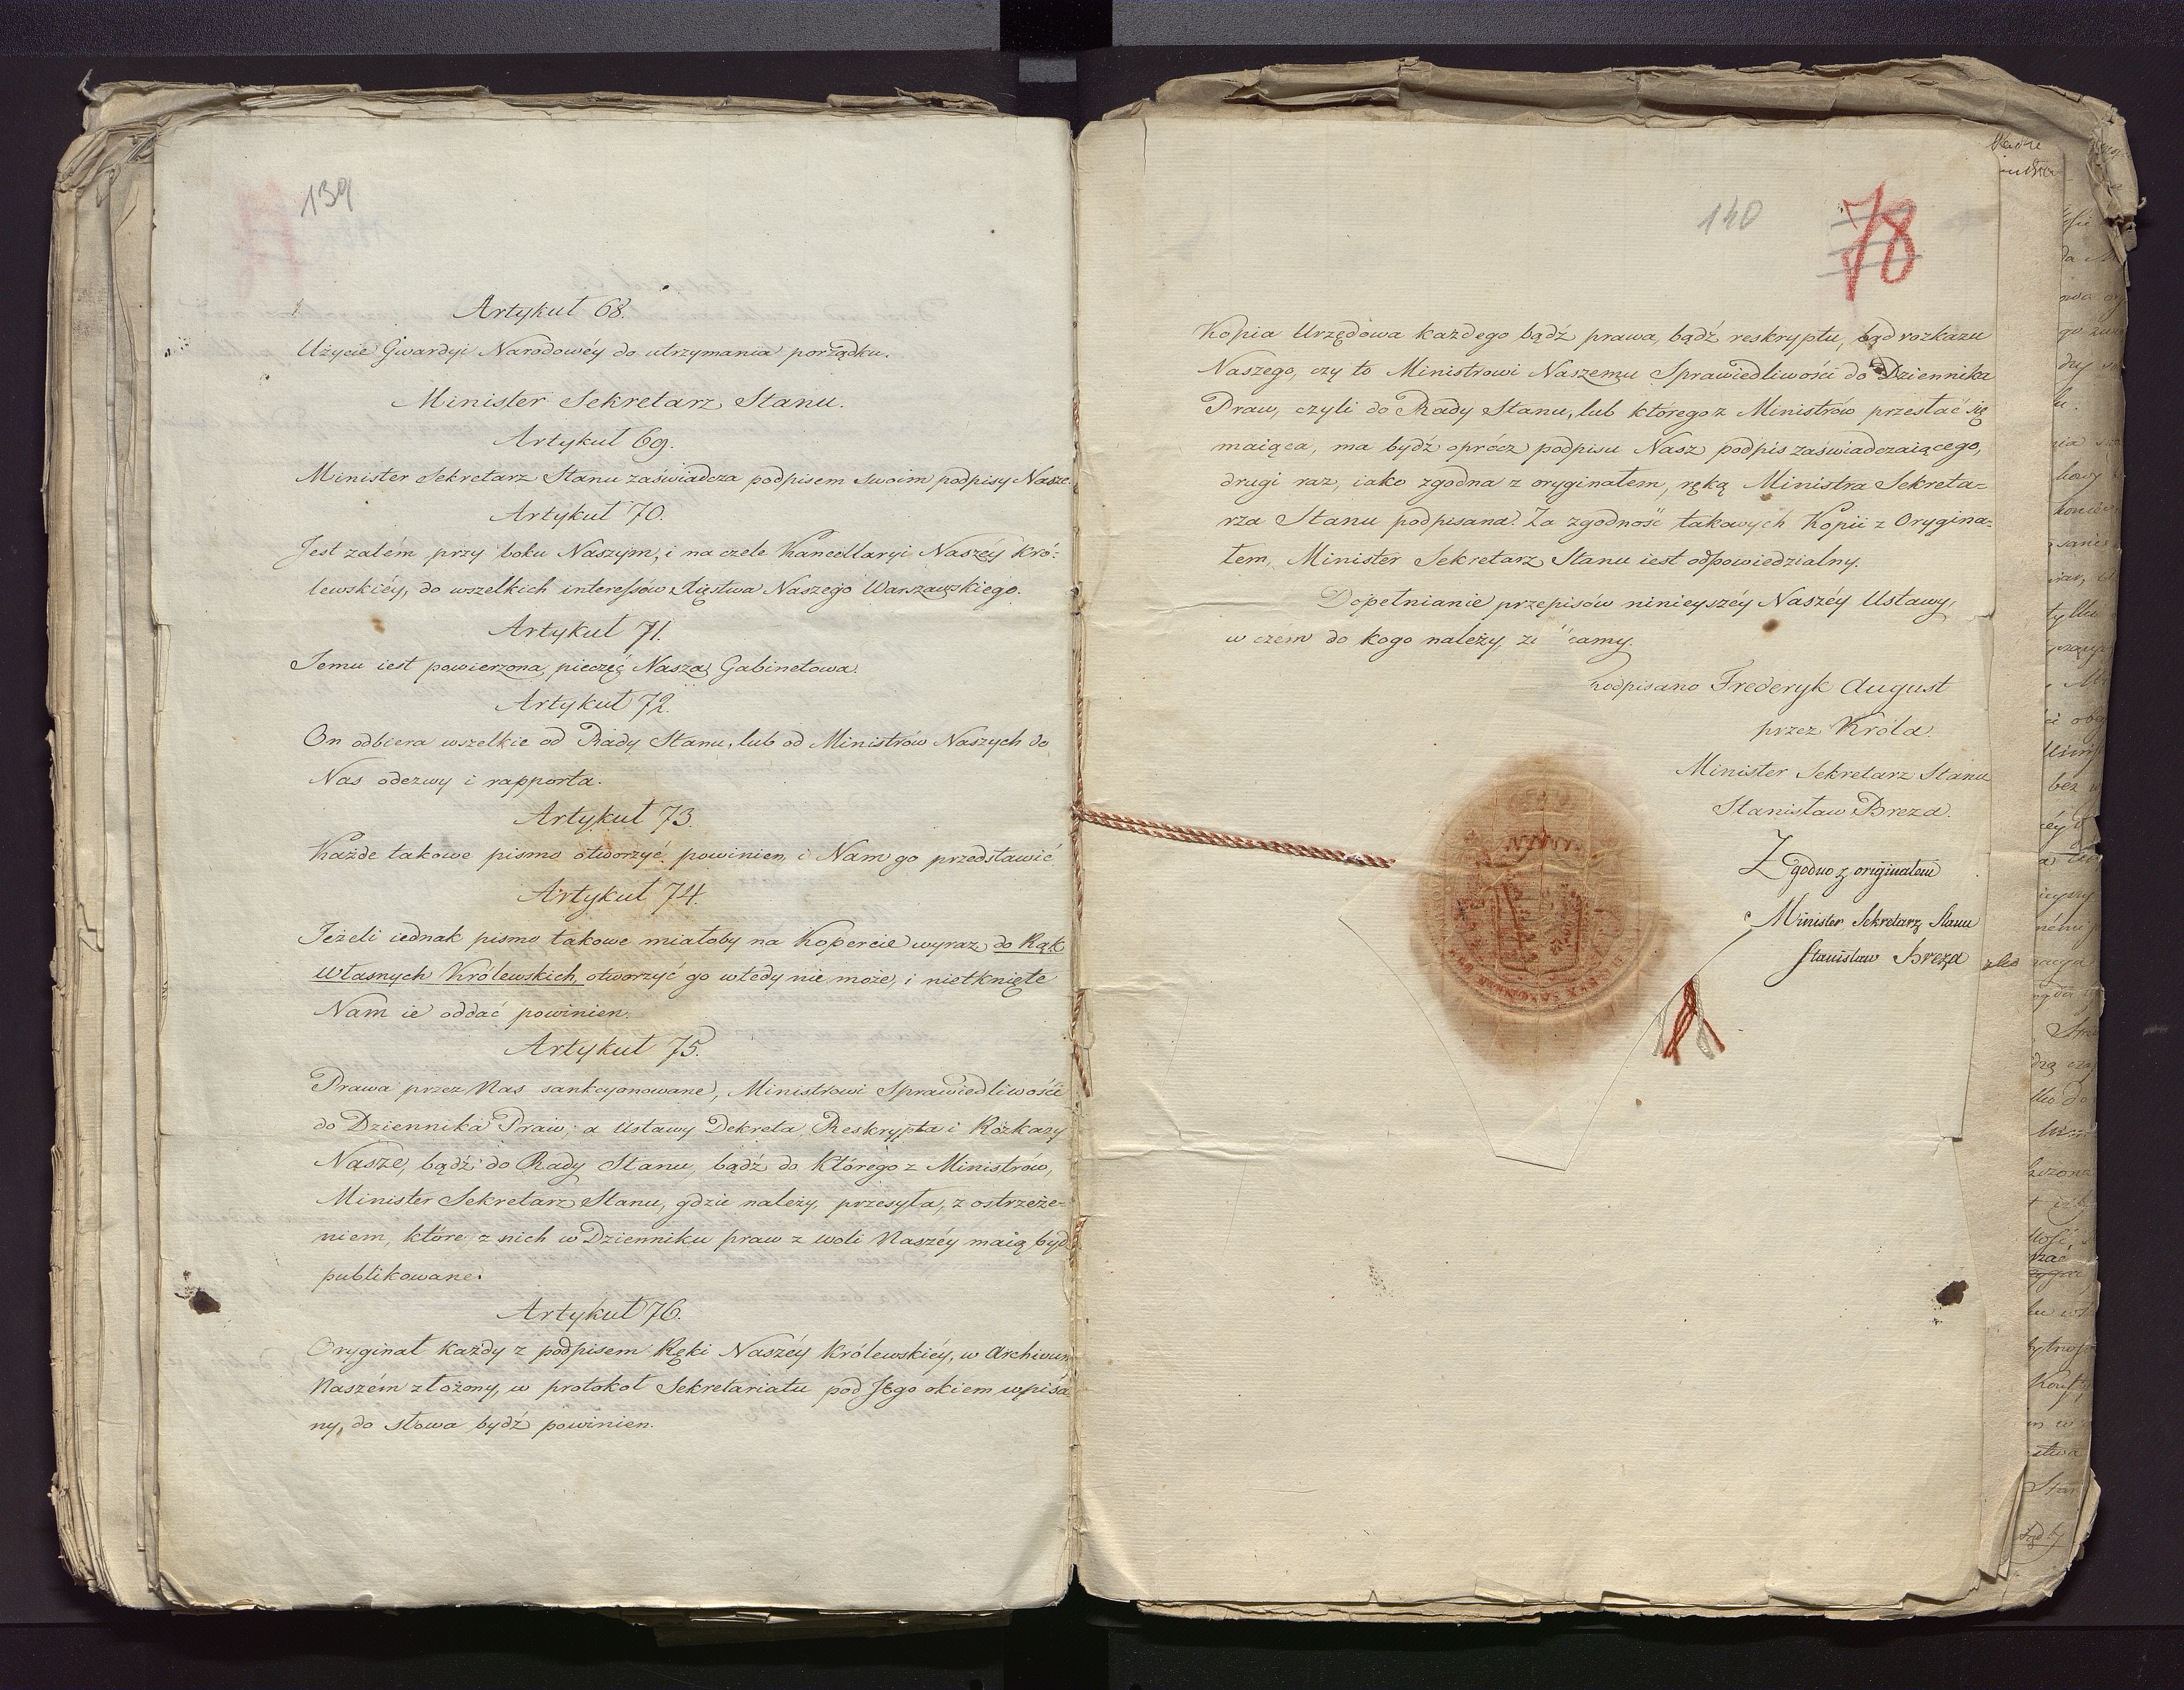 139
Artykuł 68.
Użycie Gwardyi Narodowéy do utrzymania porządku.
Minister Sekretarz Stanu.
Artykuł 69.
Minister Sekretarz Stanu zaświadcza podpisem swoim podpisy Nasze.
Artykuł 70.
Jest zatém przy boku Naszym, i na czele Kancellaryi Naszéy Kró-
lewskiéy, do wszelkich interessów Xięstwa Naszego Warszawskiego.
Artykuł 71.
Jemu iest powierzona pieczęć Nasza Gabinetowa.
Artykuł 72.
On odbiera wszelkie od Rady Stanu, lub od Ministrów Naszych do
Nas odezwy i rapporta.
Artykuł 73.
Każde takowe pismo otworzyć powinien, i Nam go przedstawić
Artykuł 74.
Jeżeli iednak pismo takowe miałoby na Kopercie wyraz do Rąk
Własnych Królewskich, otworzyć go wtedy nie może, i nietknięte
Nam ie oddać powinien.
Artykuł 75.
Prawa przez Nas sankcyonowane, Ministrowi Sprawiedliwości
do Dziennika Praw; a Ustawy Dekreta, Reskrypta i Rozkazy
Nasze, bądź do Rady Stanu, bądź do którego z Ministrów,
Minister Sekretarz Stanu, gdzie należy, przesyła, z ostrzeże-
niem, które z nich w Dzienniku praw z woli Naszéy maią bydź
publikowane.
Artykuł 76.
Oryginał każdy z podpisem Ręki Naszéy Królewskiéy, w Archivum
Naszém złożony, w protokół Sekretariatu pod Jego okiem wpisa
ny, do słowa bydź powinien.
140
78
Kopia Urzędowa każdego bądź prawa, bądź reskryptu, bąd rozkazu
Naszego, czy to Ministrowi Naszemu Sprawiedliwości do Dziennika
Praw, czyli do Rady Stanu, lub którego z Ministrów przesłać się
maiąca, ma bydź oprócz podpisu Nasz podpis zaświadczaiącego,
drugi raz, iako zgodna z oryginałem, ręką Ministra Sekreta-
rza Stanu podpisana. Za zgodność takowych Kopii z Orygina-
łem, Minister Sekretarz Stanu iest odpowiedzialny.
Dopełnianie przepisów ninieyszéy Naszéy Ustawy,
w czém do kogo należy, camy.
podpisano Frederyk August
przez Króla.
Minister Sekretarz Stanu
Stanisław Breza.
Zgodno z originałem
Minister Sekretarz Stanu
Stanisław Breza